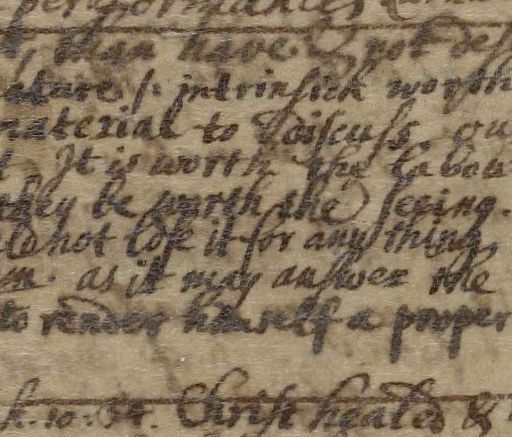 than have &
nature /: intrinsick worth
material to discuss. ou
t. It is worth the labou
they be worth the seeing.
ld not lose it for any thing
m. as it may answer the
to render himself a proper
k. 10: 34. Christ healed &